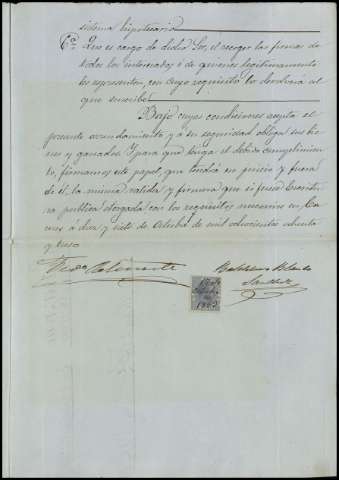 sistema hipotecario
6ª Que es cargo de dicho Sor, el recoger las firmas de
todos los interesados ó de quienes legitimamente
les representen, sin cuyo requisito lo devolverá al
que suscribe
Bajo cuyas condiciones acepta el
presente arrendamiento y á su seguridad obliga sus bie-
nes y ganados. Y para que tenga el debido cumplimien-
to, firmamos este papel, que tendrá en juicio y fuera
de él la misma validez y firmeza que si fuese Escritu-
ra publica otorgada con los requisitos necesarios en
á diez y siete de Octubre de mil ochocientos ochenta
y tres
Blanco